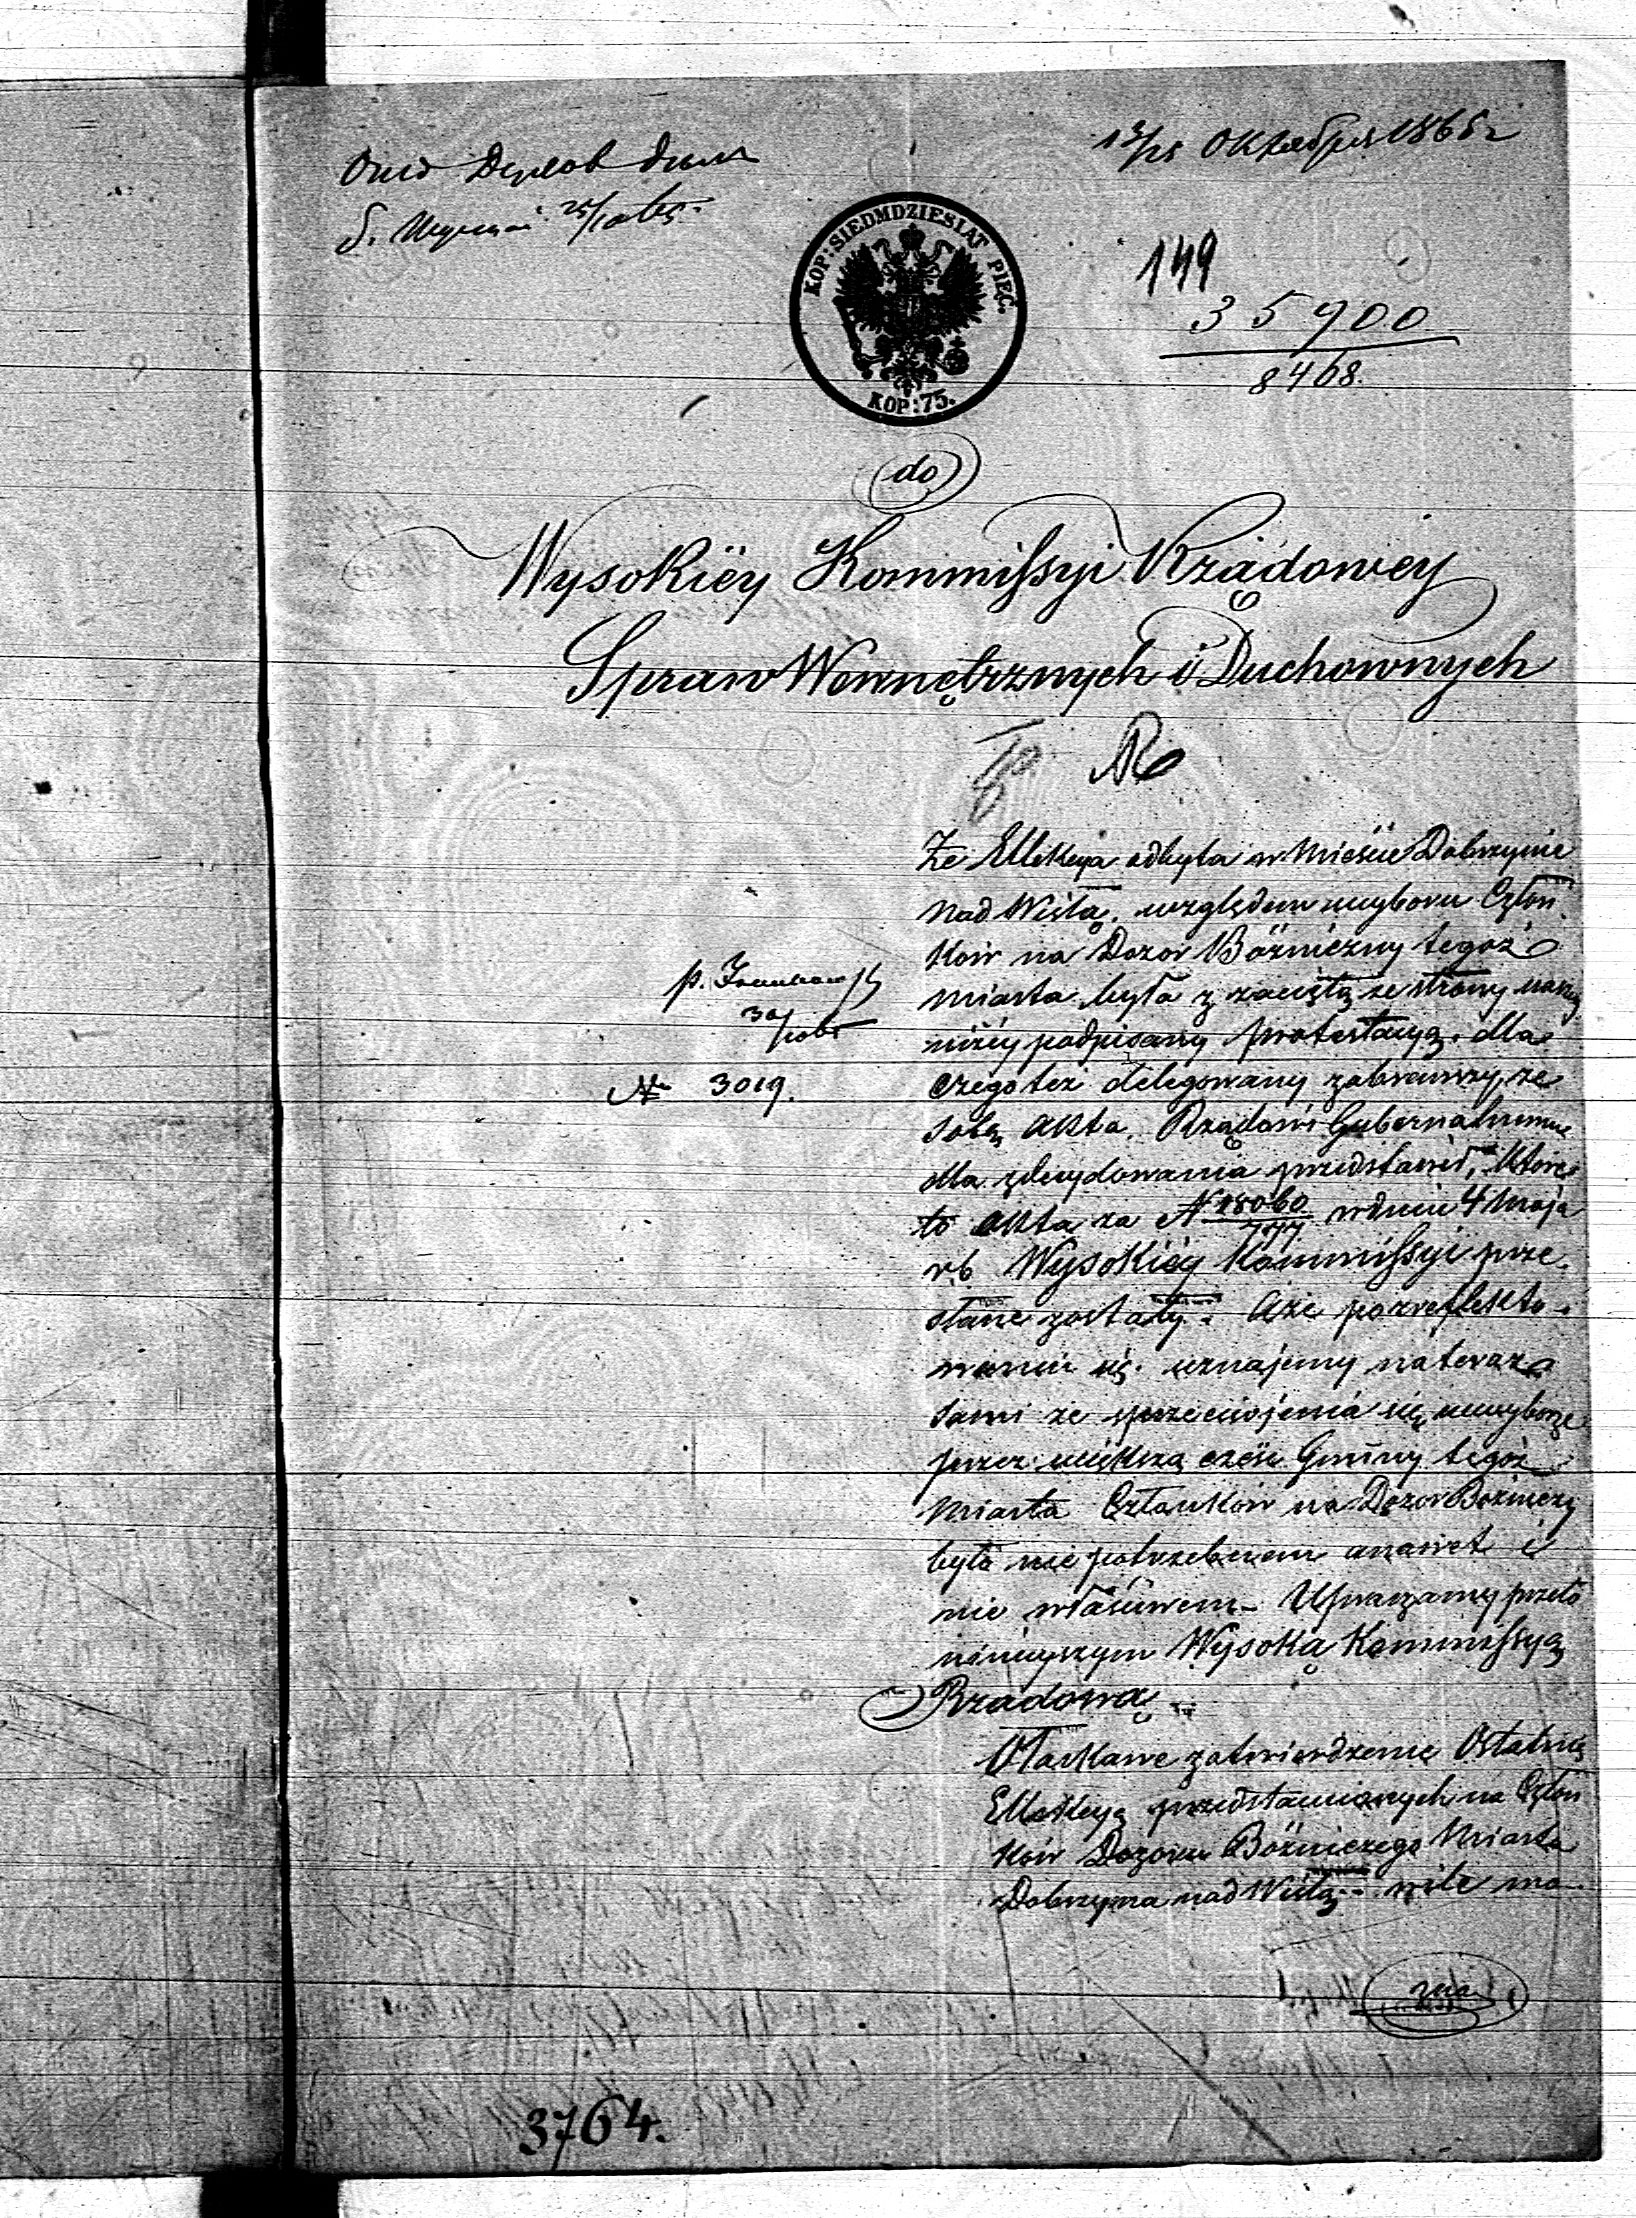 13/25 Октября 1865 г
149
35900
8468.
KOP: SIEDMDZIESIĄT PIĘC.
KOP: 75.
do
Wysokiéy Kommissyi Rządowey
Spraw Wewnętrznych i Duchownych
Że Ellekcya odbyta w Mieście Dobrzynie
nad Wisłą, względem wyboru Człon
ków na Dozor Bóżniczny tegoż
miasta była z zaciętą ze strony naszéy
niżéy podpisany protestacyą, dla
czego też delegowany zabrawszy ze
sobą akta, Rządowi Gubernalnemu
dla zdecydowania przedstawił, które
to akta za N 18060/777 w dniu 4 Maja
r.b Wysokiéy Kommissyi prze
słane zostały. Aże po zreflekto-
waniu się uznajemy na teraz
sami że sprzeciwienia się wyborze
przez większą część Gminy tegoż
Miasta Członków na Dozor Bóżniczy
było nie potrzebnem a nawet i
nie właściwem - Upraszamy przeto
niniejszym Wysoką Kommissyą
Rządową
O łaskawe zatwierdzenie Ostatnią
Ellekcyą przedstawionych na Człon
ków Dozoru Bóżniczego Miasta
Dobrzynia nad Wisłą
30/10 65
№ 3019.
3764.